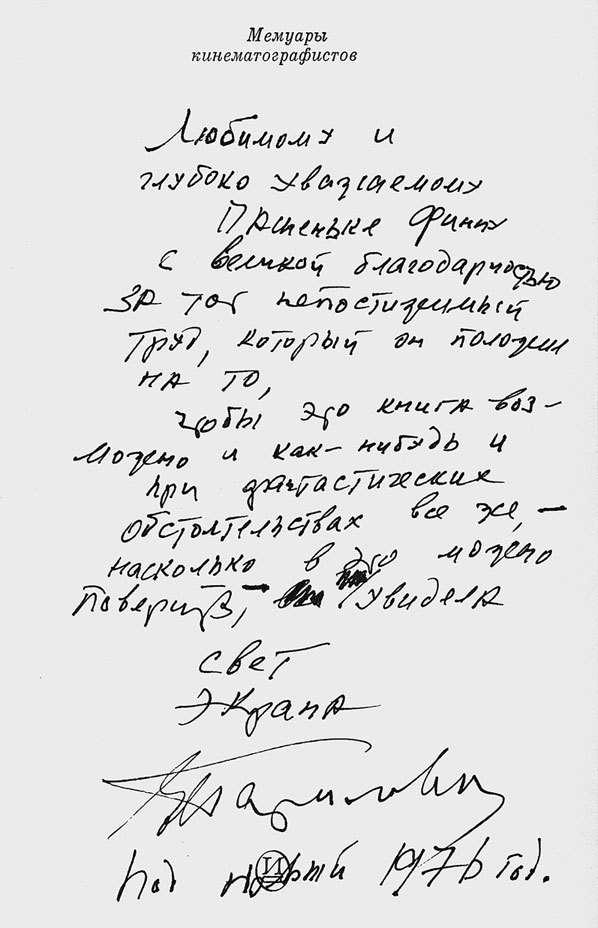 Мемуары
кинематографистов
Любимому и
глубоко уважаемому
Пашеньке Финну
с великой благодарностью
за тот непостижимый
труд, который он положил
на то,
чтобы это книга воз-
можно и как-нибудь и
при фантастических
обстоятельствах все же, —
насколько в это можно
поверить, — увидела
свет
экрана
Габрилович
Под новый 1976 год.